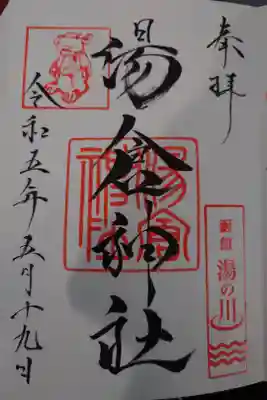 奉拝
函館
湯の川
湯倉神社
令和五年五月十九日